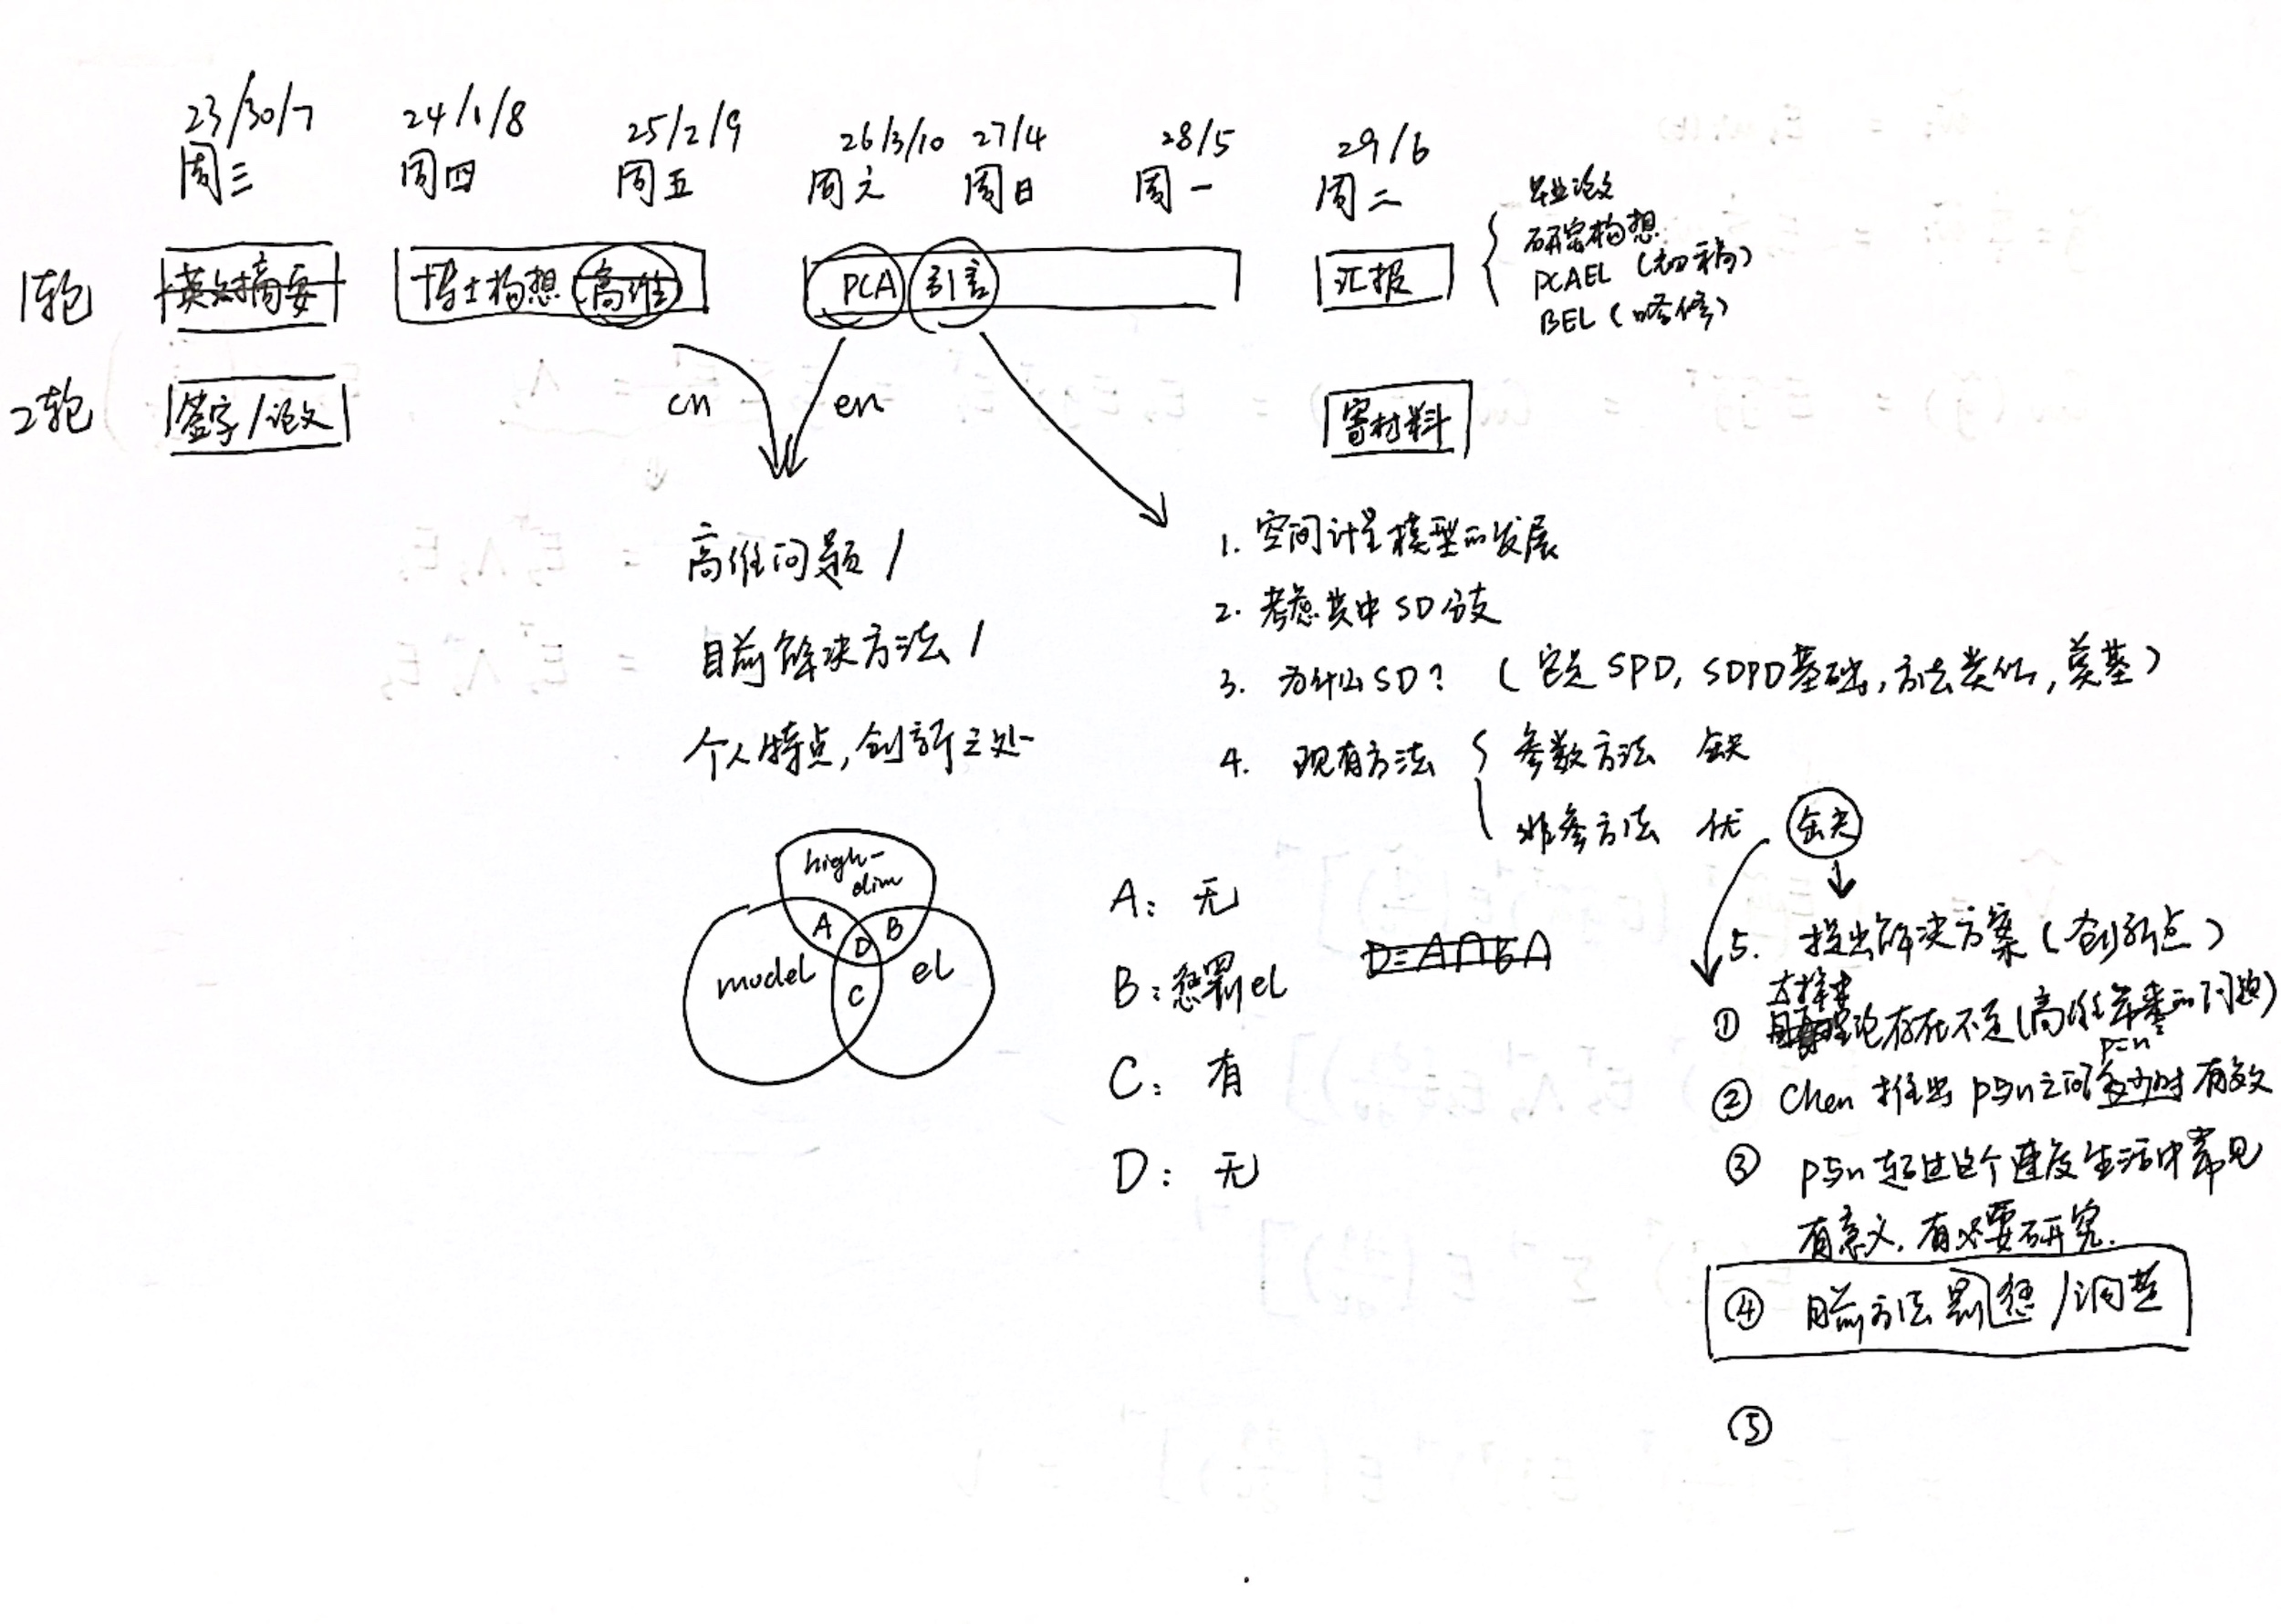 23/30/7 24/1/8 25/2/9 26/3/10 27/4 28/5 29/6
周三 周四 周五 周六 周日 周一 周二
1轮 英文摘要 博士构想 高维 PCA 引言 汇报
毕业论文
研究构想
PCAEL（初稿）
BEL（略修）
2轮 签字/论文 cn en 寄材料
高维问题/
目前解决方法/
个人特点,创新之处
high-dim
A B
D
model el
C
A: 无
B: 惩罚el
C: 有
D: 无
1. 空间计量模型的发展
2. 考虑其中SD分支
3. 为什么SD?（它是SPD, SDPD基础,方法类似,奠基）
4. 现有方法 参数方法 缺
非参方法 优 缺
5. 提出解决方案（创新点）
① 理论存在不足(高维带来的问题)
② Chen 推出 p与n之间 时有效
③ p与n超过这个速度生活中常见
有意义,有必要研究.
④ 目前方法 罚惩/
⑤